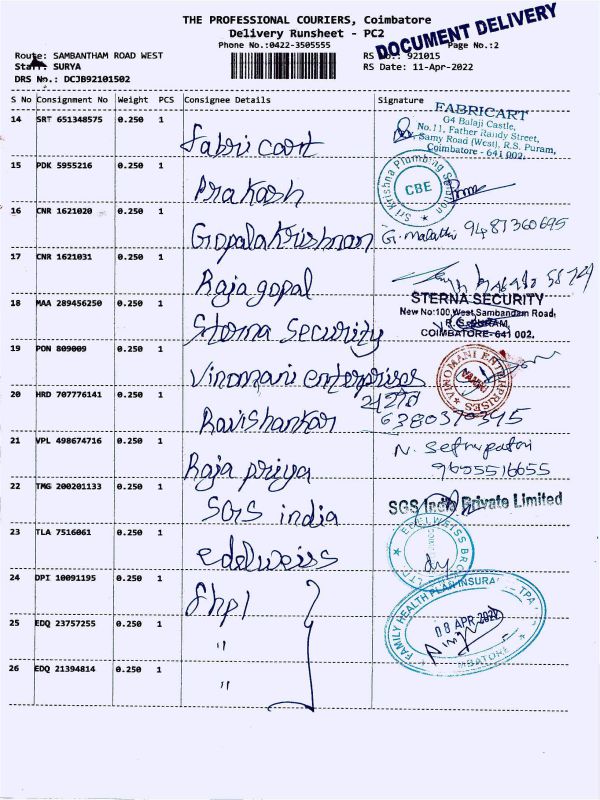 THE PROFESSIONAL COURIERS, Coimbatore
Delivery Runsheet - PC2
DOCUMENT DELIVERY
Phone No.:0422-3505555
Page No.:2
Route: SAMBANTHAM ROAD WEST
RS No.: 921015
Staff: SURYA
RS Date: 11-Apr-2022
DRS No.: DCJB92101502
S No Consignment No Weight PCS Consignee Details Signature
14 SRT 651348575 0.250 1 Fabricart
FABRICART
O4 Balaji Castle,
No.11, Father Randy Street,
Samy Road (West), R.S. Puram,
Coimbatore - 641 002.
15 PDK 5955216 0.250 1 Prakash
Sri Krishna Plumbing Solution
CBE
16 CNR 1621020 0.250 1 Gopalakrishnan
G. Malathi 9487360695
17 CNR 1621031 0.250 1 Rajagopal
18 MAA 289456250 0.250 1 Sterna Security
STERNA SECURITY
New No:100,West Sambandam Road,
R.S. PURAM,
COIMBATORE- 641 002.
19 PON 809009 0.250 1 Vinomani enterprises
VINOMANI ENTERPRISES
20 HRD 707776141 0.250 1 Ravishankar
21 VPL 498674716 0.250 1 Raja priya
N. Sethupathi
9605516655
22 TMG 200201133 0.250 1 SGS india
SGS India Private Limited
23 TLA 7516061 0.250 1 edelweiss
EDELWEISS BRO
LTD.
24 DPI 10091195 0.250 1 fhpl
FAMILY HEALTH PLAN INSURA TPA
08 APR 2022
MBATORE
25 EDQ 23757255 0.250 1 "
26 EDQ 21394814 0.250 1 "